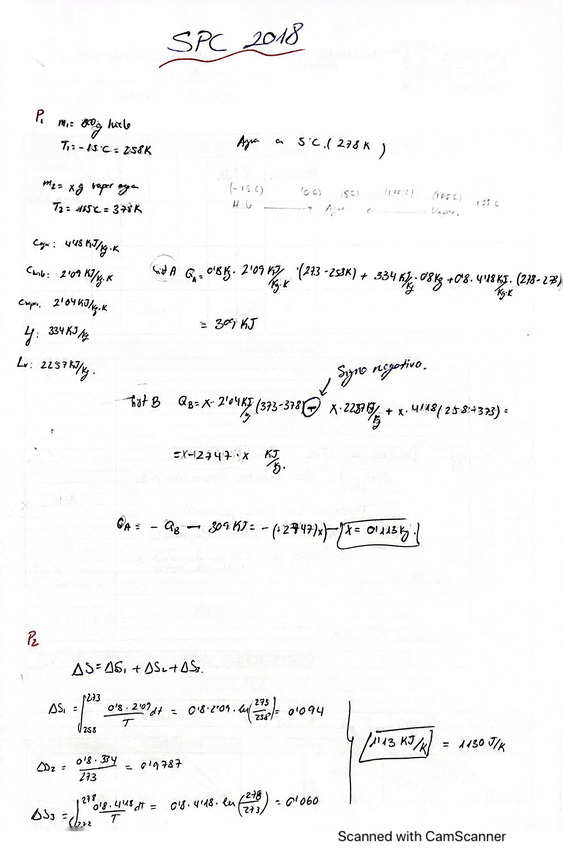 SPC 2018
P₁ m₁ = 800g hielo
T₁ = -15°C = 258K
Agua a 5°C. (278K)
m₂ = x g vapor agua
T₂ = 105°C = 378K
(-15C) (0C) (5C) (100C) (105C)
Hielo → Agua ← Vapor.
Cagua: 4'18 KJ/Kg·K
Chielo: 2'09 KJ/Kg·K
Cvapor: 2'04 KJ/Kg·K
Lf: 334 KJ/Kg
Lv: 2257 KJ/Kg.
A Q_A = 0'8Kg · 2'09 KJ/Kg·K · (273-258K) + 334 KJ/Kg · 0'8Kg + 0'8 · 4'18 KJ/Kg·K · (278-273)
= 309 KJ
Signo negativo.
B Q_B = x · 2'04 KJ/Kg (373-378) - x · 2257 KJ/Kg + x · 4'18 (278-373) =
= x-2747·x KJ/Kg.
Q_A = - Q_B → 309 KJ = - (-2747)x) → x = 0'113 Kg.
P₂
ΔS = ΔS₁ + ΔS₂ + ΔS₃.
ΔS₁ = ∫₂₅₈²⁷³ 0'8 · 2'09/T dt = 0'8 · 2'09 · ln(273/258) = 0'094
ΔS₂ = 0'8 · 334/273 = 0'9787
1'13 KJ/K = 1130 J/K
ΔS₃ = ∫₂₇₃²⁷⁸ 0'8 · 4'18/T dt = 0'8 · 4'18 · ln(278/273) = 0'060
Scanned with CamScanner